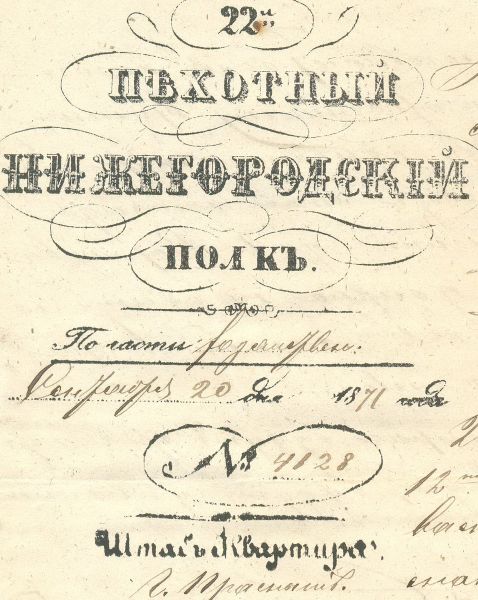 22й
ПѢХОТНЫЙ
НИЖЕГОРОДСКІЙ
ПОЛКЪ.
По части хозяйствен:
Сентября 20 дня 1871 года
№ 4128
Штабъ Квартира:
г. Праснышъ.
12